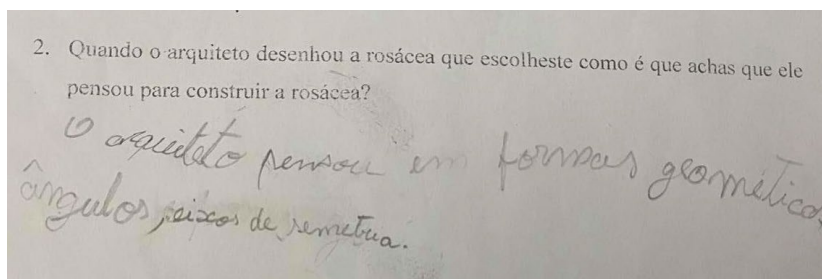 2. Quando o arquiteto desenhou a rosácea que escolheste como é que achas que ele
pensou para construir a rosácea?
O arquiteto pensou em formas geométricas,
ângulos, eixos de semetria.